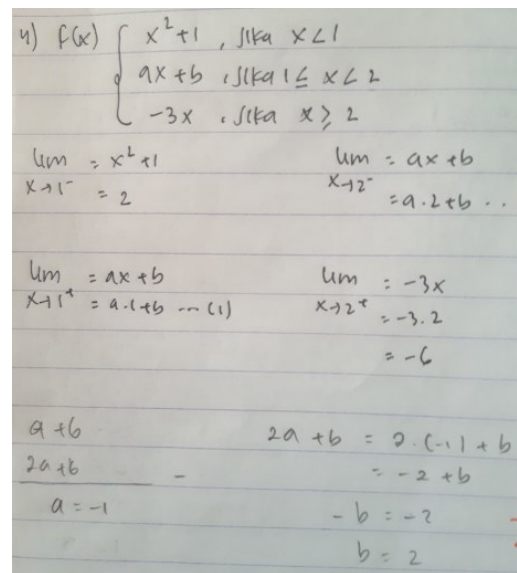 4) f(x) { x²+1 , jika x<1
ax+b , jika 1≤ x<2
-3x , jika x≥2
lim x→1⁻ = x²+1
= 2
lim x→2⁻ = ax+b
= a.2+b ..
lim x→1⁺ = ax+b
= a.1+b --- (1)
lim x→2⁺ = -3x
= -3.2
= -6
a+b
2a+b -
a = -1
2a+b = 2.(-1)+b
= -2+b
-b = -2
b = 2